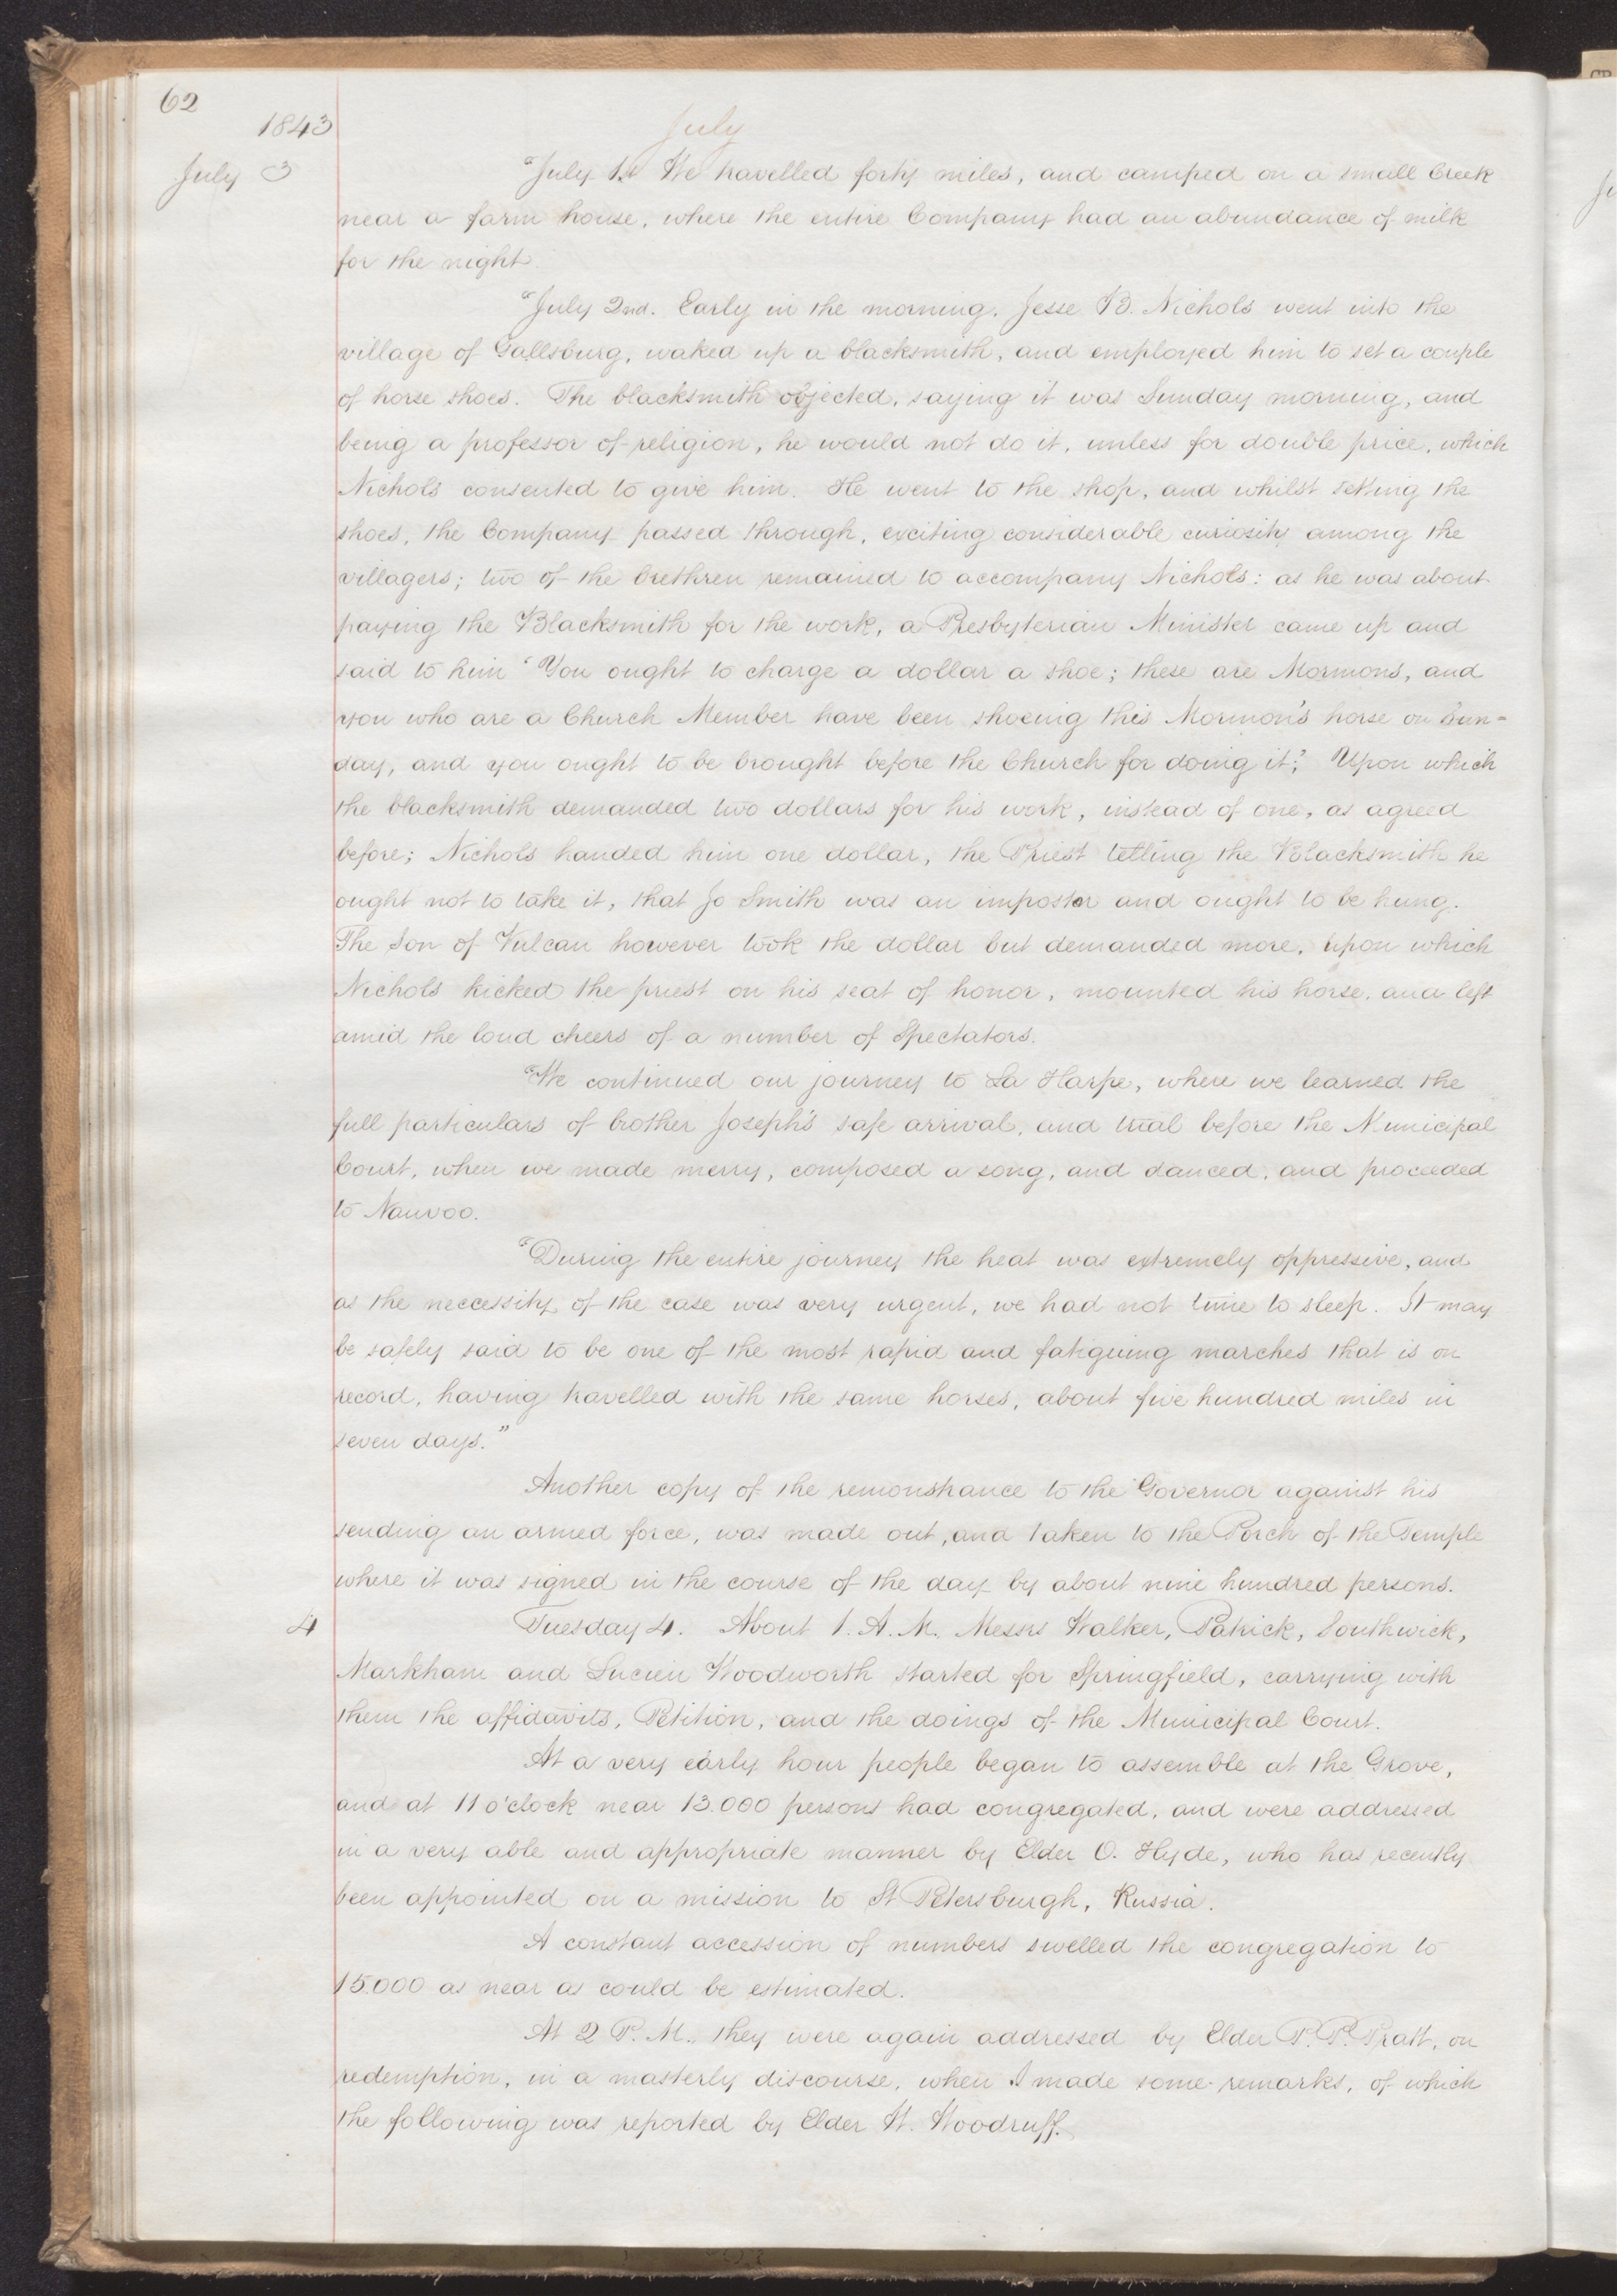 62
1843
July
July 3
"July 1st We travelled forty miles, and camped on a small Creek
near a farm house, where the entire Company had an abundance of milk
for the night.
"July 2nd. Early in the morning. Jesse B. Nichols went into the
village of Gallsburg, waked up a blacksmith, and employed him to set a couple
of horse shoes. The blacksmith objected, saying it was Sunday morning, and
being a professor of religion, he would not do it, unless for double price, which
Nichols consented to give him. He went to the shop, and whilst setting the
shoes, the Company passed through, exciting considerable curiosity among the
villagers; two of the brethren remained to accompany Nichols: as he was about
paying the Blacksmith for the work, a Presbyterian Minister came up and
said to him 'You ought to charge a dollar a shoe; these are Mormons, and
you who are a Church Member have been shoeing this Mormon's horse on Sun=
day, and you ought to be brought before the Church for doing it;' Upon which
the blacksmith demanded two dollars for his work, instead of one, as agreed
before; Nichols handed him one dollar, the Priest telling the Blacksmith he
ought not to take it, that Jo Smith was an impostor and ought to be hung.
The Son of Vulcan however took the dollar but demanded more, upon which
Nichols kicked the priest on his seat of honor, mounted his horse, and left
amid the loud cheers of a number of Spectators.
"We continued our journey to La Harpe, where we learned the
full particulars of brother Joseph's safe arrival, and trial before the Municipal
Court, when we made merry, composed a song, and danced, and proceeded
to Nauvoo.
"During the entire journey the heat was extremely oppressive, and
as the neccessity of the case was very urgent, we had not time to sleep. It may
be safely said to be one of the most rapid and fatiguing marches that is on
record, having travelled with the same horses, about five hundred miles in
seven days."
Another copy of the remonstrance to the Governor against his
sending an armed force, was made out, and taken to the Porch of the Temple
where it was signed in the course of the day by about nine hundred persons.
4
Tuesday 4. About 1. A. M. Messrs Walker, Patrick, Southwick,
Markham and Lucien Woodworth started for Springfield, carrying with
them the affidavits, Petition, and the doings of the Municipal Court.
At a very early hour people began to assemble at the Grove,
and at 11 o'clock near 13.000 persons had congregated, and were addressed
in a very able and appropriate manner by Elder O. Hyde, who has recently
been appointed on a mission to St Petersburgh, Russia.
A constant accession of numbers swelled the congregation to
15.000 as near as could be estimated.
At 2 P. M., they were again addressed by Elder P. P. Pratt, on
redemption, in a masterly discourse, when I made some remarks, of which
the following was reported by Elder W. Woodruff.